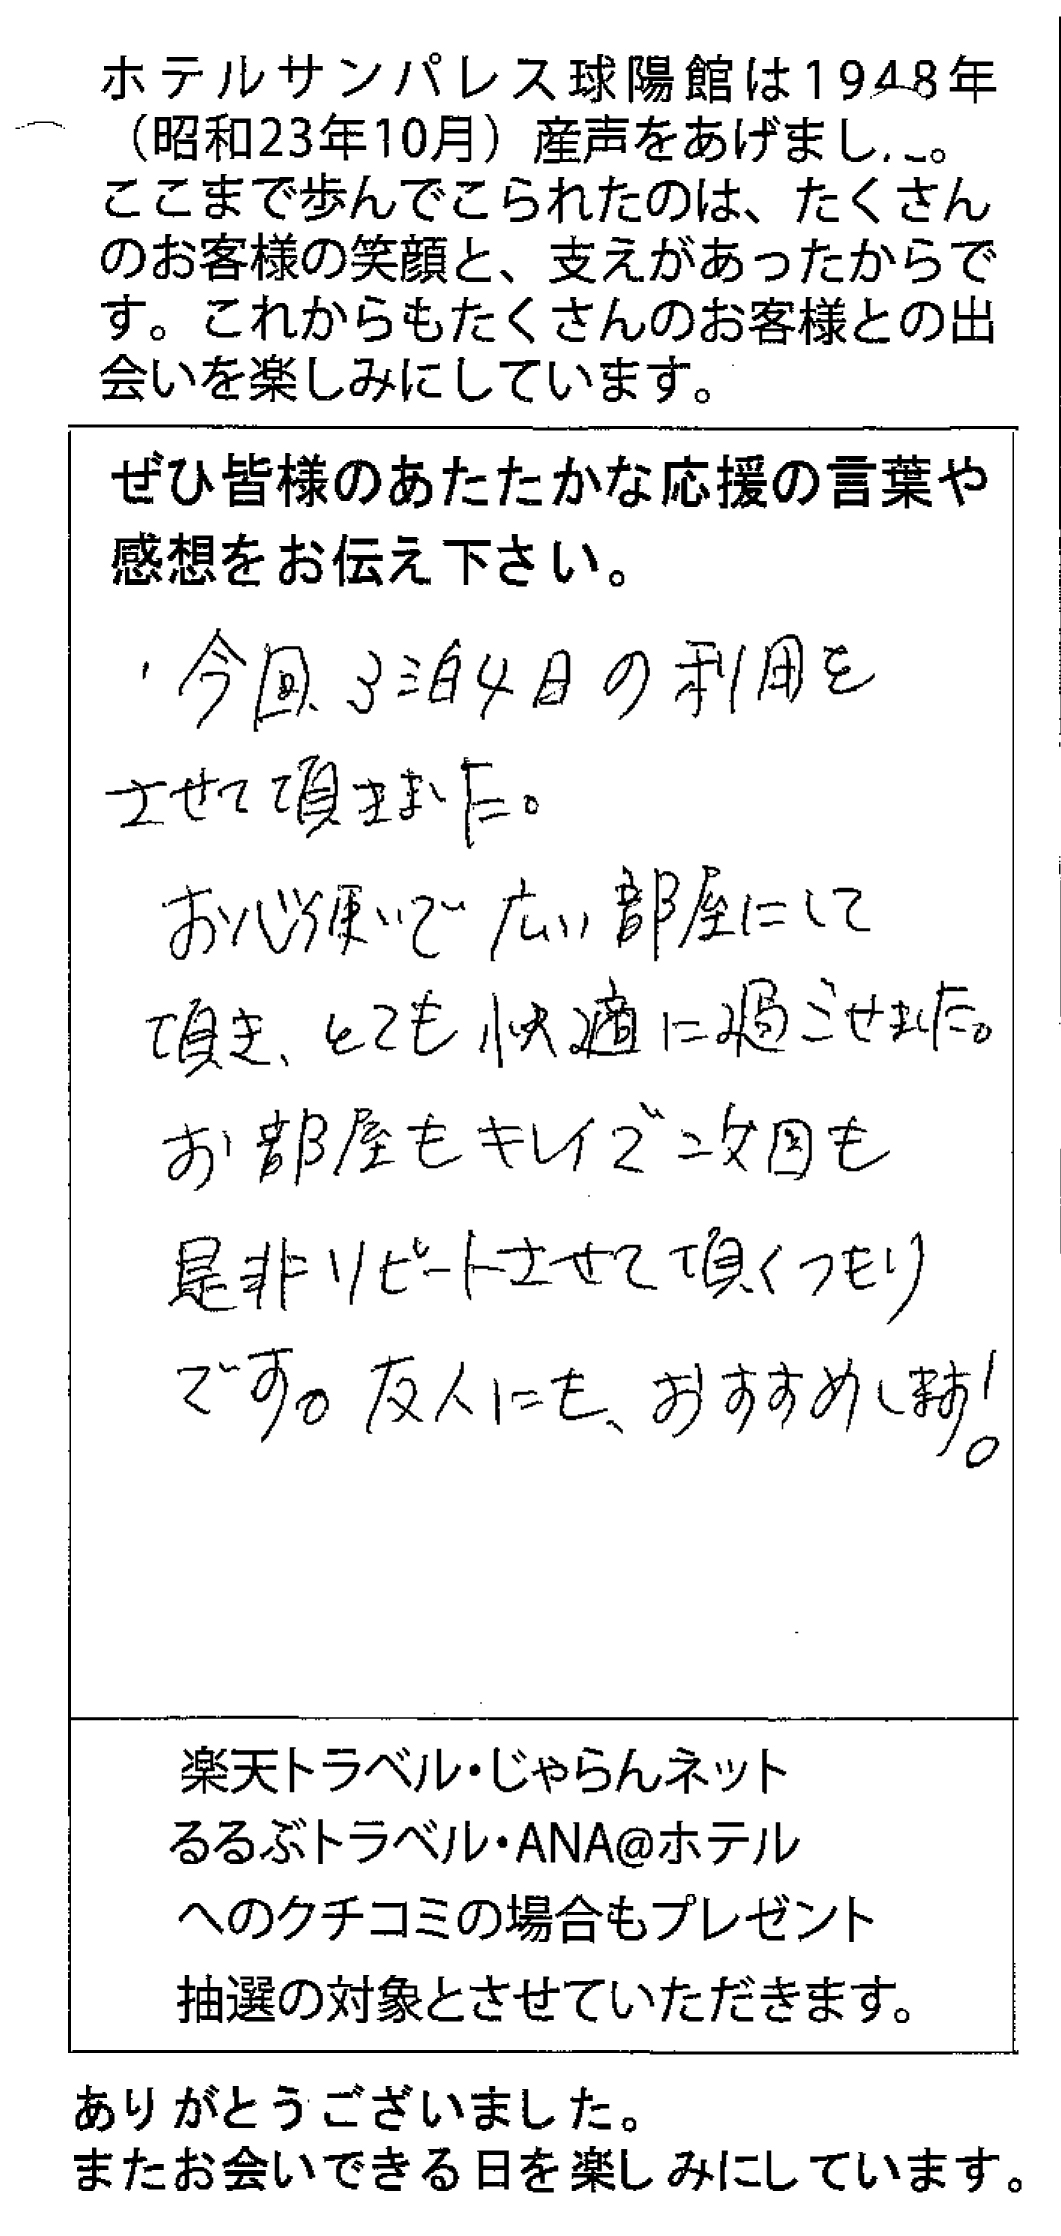 ホテルサンパレス球陽館は1948年
（昭和23年10月）産声をあげました。
ここまで歩んでこられたのは、たくさん
のお客様の笑顔と、支えがあったからで
す。これからもたくさんのお客様との出
会いを楽しみにしています。
ぜひ皆様のあたたかな応援の言葉や
感想をお伝え下さい。
今回、3泊4日の利用を
させて頂きました。
お心使いで広い部屋にして
頂き、とても快適に過ごせました。
お部屋もキレイで次回も
是非リピートさせて頂くつもり
です。友人にも、おすすめします!。
楽天トラベル・じゃらんネット
るるぶトラベル・ANA@ホテル
へのクチコミの場合もプレゼント
抽選の対象とさせていただきます。
ありがとうございました。
またお会いできる日を楽しみにしています。